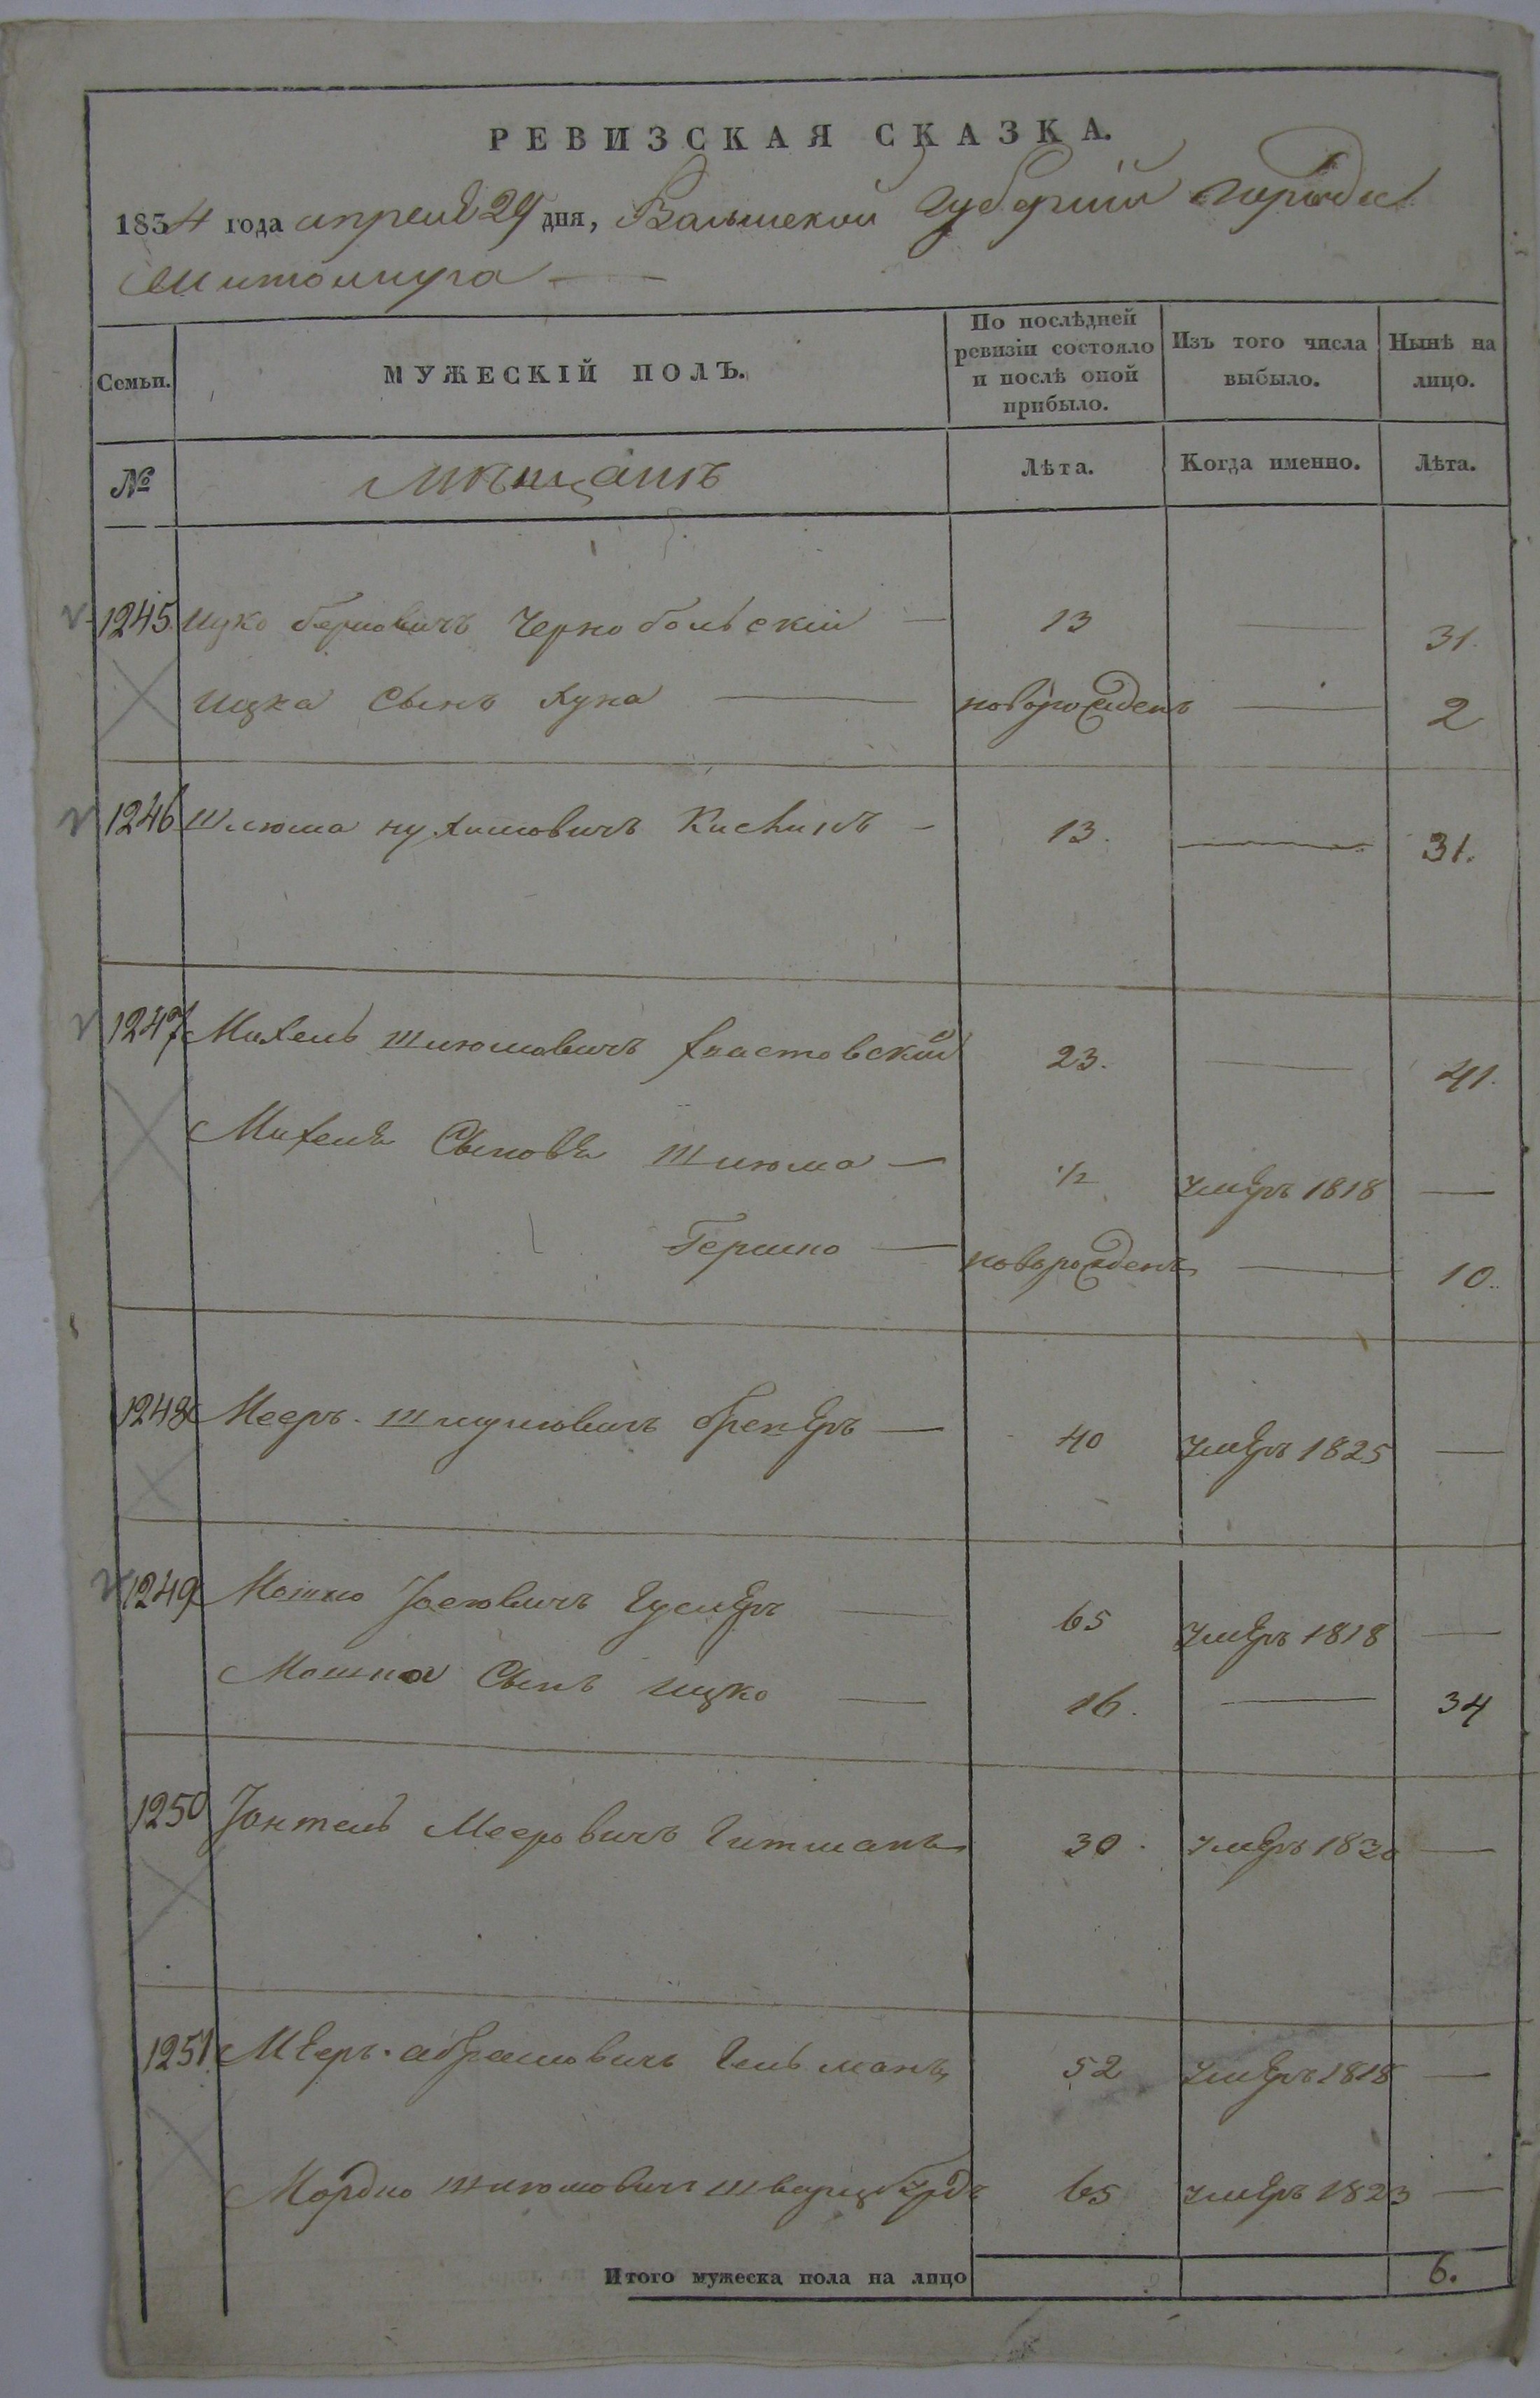 РЕВИЗСКАЯ СКАЗКА.
1834 года апреля 29 дня, Волынской Губернии города
Житомира
Семьи.
МУЖЕСКІЙ ПОЛЪ.
По послѣдней ревизіи состояло и послѣ оной прибыло.
Изъ того числа выбыло.
Нынѣ на лицо.
№
Мѣщанъ
Лѣта.
Когда именно.
Лѣта.
1245 Ицко Берковичъ Чернобольскій 13 31.
Ицка Сынъ новорожденъ 2
1246 Шлюма Нухимовичъ 13. 31.
1247 Михель Шлюмовичъ Хвастовский 23. 41.
Михеля Сыновья Шлюма 1/2 умеръ 1818
Гершко новорожденъ 10.
1248 Мееръ Шмулювичъ 40 умеръ 1825
1249 Мошко Іосювичъ 65 умеръ 1818
Мошка Сынъ Ицко 16. 34
1250 Іонтель Мееровичъ Гитманъ 30. умеръ 1830
1251 Мееръ Абрамовичъ Гельманъ 52 умеръ 1818
Мордко Шлюмовичъ Шварцбурдъ 65 умеръ 1823
Итого мужеска пола на лицо 6.